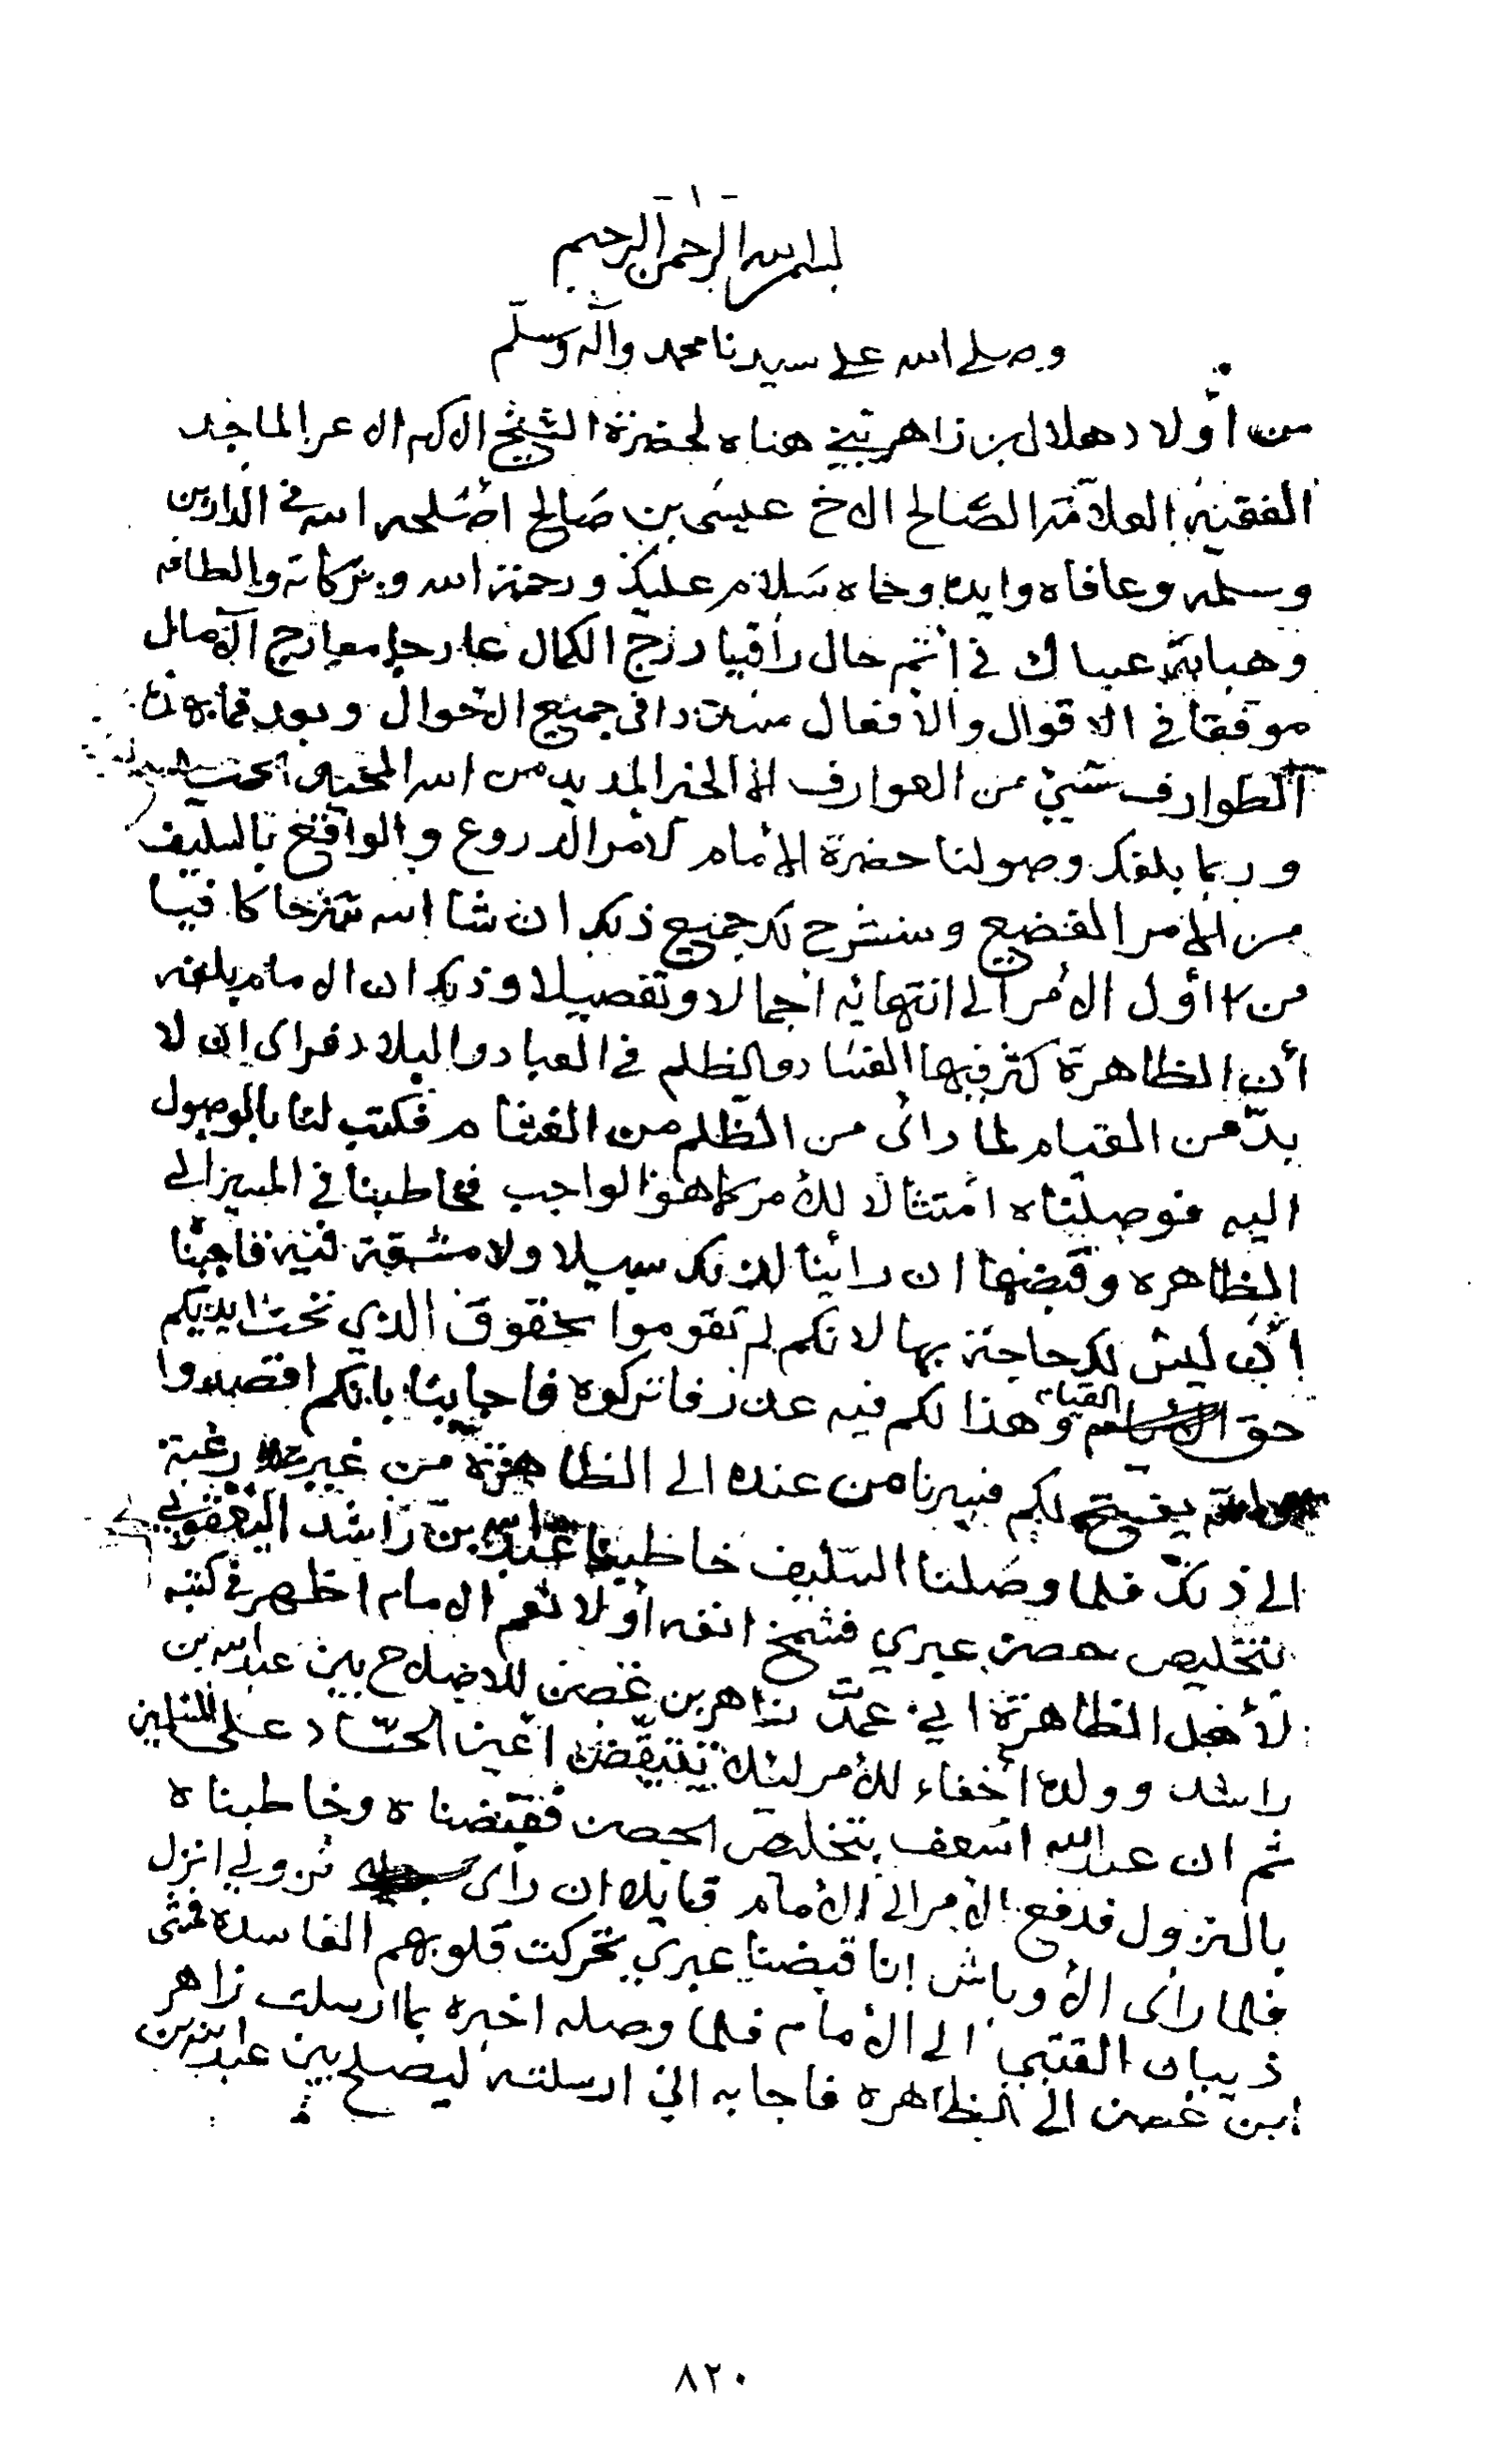 -١-
بسم الله الرحمن الرحيم
وصلى الله على سيدنا محمد وآله وسلم
من أولاد هلال بن زاهر بني هناه لحضرة الشيخ الاكرم الاعز الماجد
الفقيه العلامة الصالح الاخ عيسى بن صالح أصلحه الله في الدارين
وسلمه وعافاه وايده وحماه سلام عليك ورحمة الله وبركاته والطافه
وهباته عساك في أتم حال راقيا درج الكمال معارج الآمال
موفقا في الاقوال والأفعال في جميع الاحوال وبعد فما
الطوارف شيئ من العوارف الا الخبر المديد من الله
وربما بلغك وصولنا حضرة الإمام لأمر الدروع والواقع بالسليف
من الامر الفضيع وسنشرح لك جميع ذلك ان شا الله شرحا كافيا
من أول الأمر الى انتهائه اجمالا وتفصيلا وذلك ان الامام بلغه
أن الظاهرة كثر فيها الفساد والظلم في العباد والبلاد فراى ان لا
بدّ من القيام لما رائى من الظلم من الغشام فكتب لنا بالوصول
اليه فوصلناه امتثالا للأمر كما هو الواجب فخاطبنا في المسير الى
الظاهره وقبضها ان رائينا لذلك سبيلا ولا مشقة فيه فاجبنا
أن ليس لك حاجة بها لانكم لم تقوموا بحقوق الذي تحت ايديكم
حق القيام وهذا لكم فيه عذر فاتركوه فاجابنا بانكم اقصدوا
يفتح لكم فسرنا من عنده الى الظاهرة من غير رغبة
الى ذلك فلما وصلنا السليف خاطبنا عبدالله بن راشد اليعقوبي
بتخليص حصن عبري فشمخ انفه أولا ثم الامام اظهر في كتبه
لأهل الظاهرة زاهر بن غصن للاصلاح بين عبدالله بن
راشد وولده أخفاء للأمر لئلا أعين الحساد على
ثم ان عبدالله اسعف بتخليص الحصن فقبضناه وخاطبناه
بالنزول فدفع الأمر الى الإمام قايلا ان راى نزولي انزل
فلما رائى الأوباش إنا قبضنا عبري تحركت قلوبهم الفاسدة فمشى
ذيبان القتبي الى الأمام فلما وصله اخبره بما ارسلت زاهر
ابن غصن الى الظاهره فاجابه اني ارسلته ليصلح بين عبدالله بن
٨٢٠